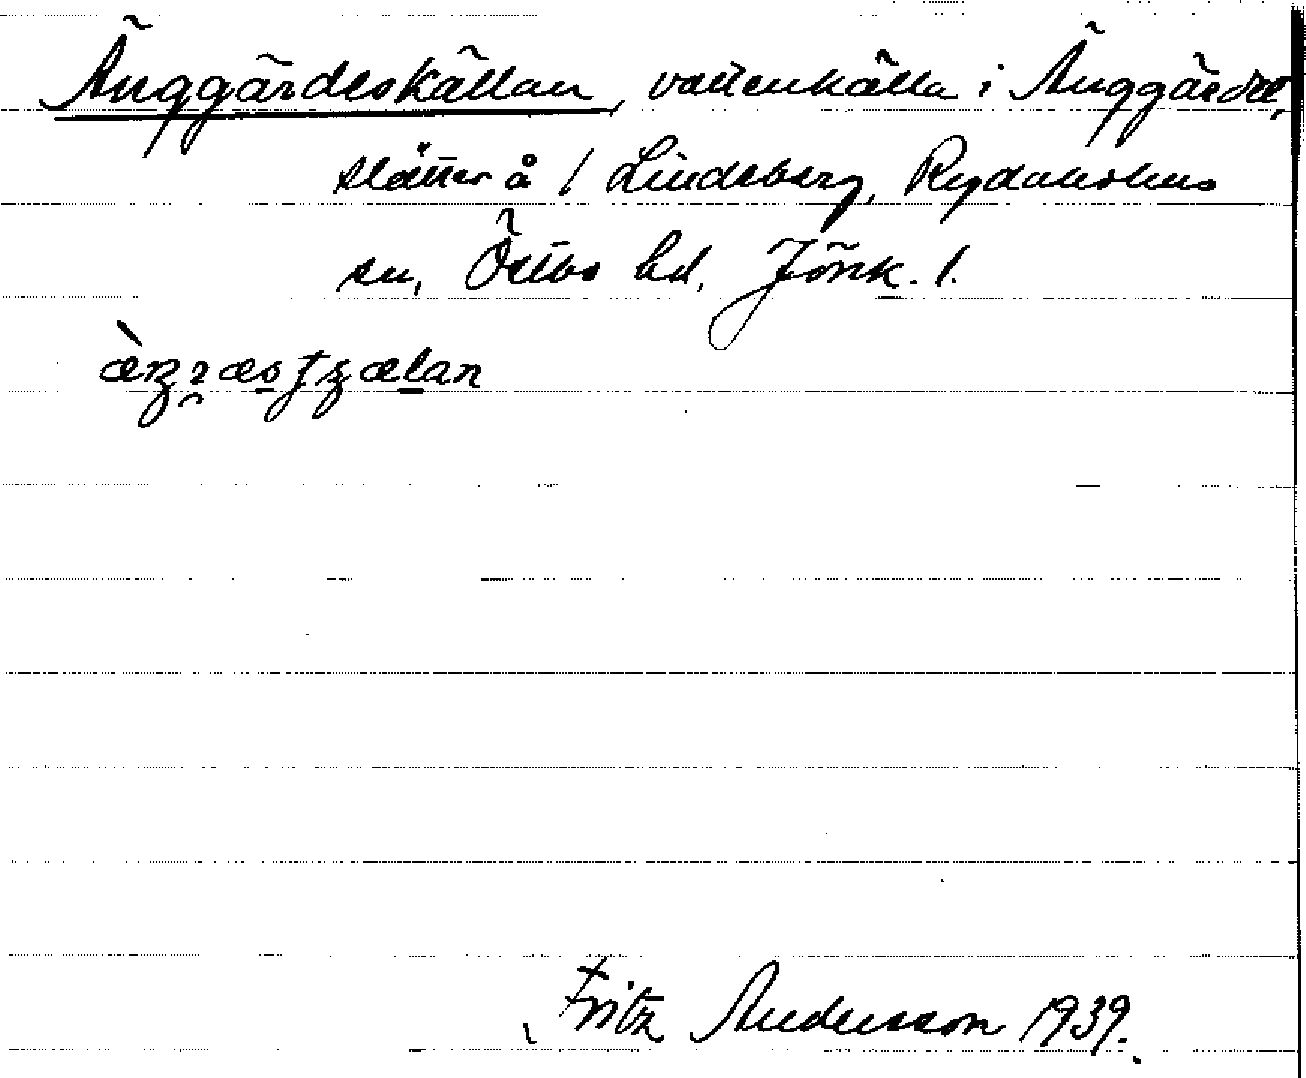 Änggärdeskällan, vattenkälla i Änggärdet,
slätter å / Lindsberg, Rydaholms
sn, Östbo hd, Jönk. l.
Fritz Andersson 1939.